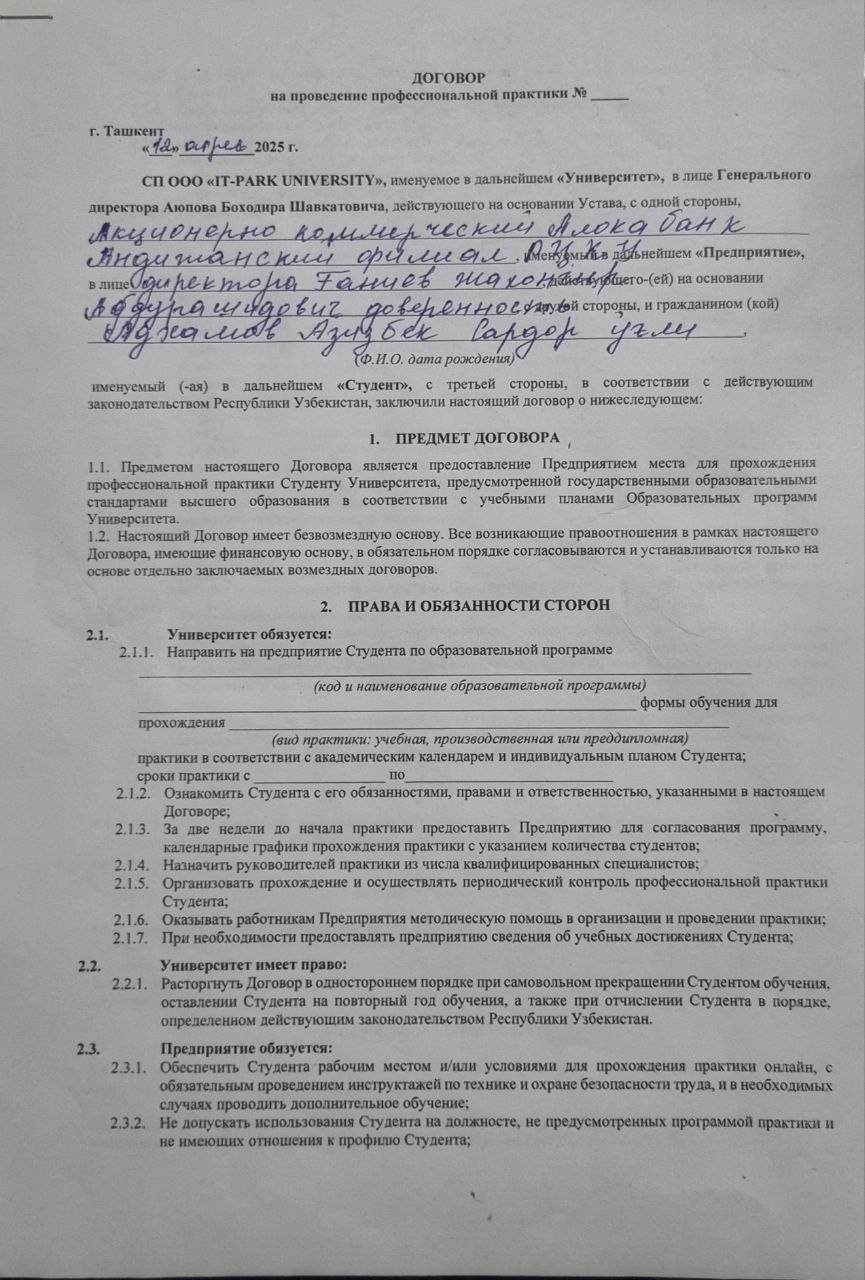 ДОГОВОР
на проведение профессиональной практики № _____
г. Ташкент
«12» апрев 2025 г.
СП ООО «IT-PARK UNIVERSITY», именуемое в дальнейшем «Университет», в лице Генерального
директора Аюпова Боходира Шавкатовича, действующего на основании Устава, с одной стороны,
Акционерно коммерческий Алока банк
Андижанский филиал, именуемый в дальнейшем «Предприятие»,
в лице директора Ганиев Жахонгир, действующего-(ей) на основании
Абдурашидович доверенность другой стороны, и гражданином (кой)
Аджамов Азизбек Сардор ўгли,
(Ф.И.О. дата рождения)
именуемый (-ая) в дальнейшем «Студент», с третьей стороны, в соответствии с действующим
законодательством Республики Узбекистан, заключили настоящий договор о нижеследующем:
1. ПРЕДМЕТ ДОГОВОРА
1.1. Предметом настоящего Договора является предоставление Предприятием места для прохождения
профессиональной практики Студенту Университета, предусмотренной государственными образовательными
стандартами высшего образования в соответствии с учебными планами Образовательных программ
Университета.
1.2. Настоящий Договор имеет безвозмездную основу. Все возникающие правоотношения в рамках настоящего
Договора, имеющие финансовую основу, в обязательном порядке согласовываются и устанавливаются только на
основе отдельно заключаемых возмездных договоров.
2. ПРАВА И ОБЯЗАННОСТИ СТОРОН
2.1. Университет обязуется:
2.1.1. Направить на предприятие Студента по образовательной программе
(код и наименование образовательной программы)
формы обучения для
прохождения
(вид практики: учебная, производственная или преддипломная)
практики в соответствии с академическим календарем и индивидуальным планом Студента;
сроки практики с _____ по _____
2.1.2. Ознакомить Студента с его обязанностями, правами и ответственностью, указанными в настоящем
Договоре;
2.1.3. За две недели до начала практики предоставить Предприятию для согласования программу,
календарные графики прохождения практики с указанием количества студентов;
2.1.4. Назначить руководителей практики из числа квалифицированных специалистов;
2.1.5. Организовать прохождение и осуществлять периодический контроль профессиональной практики
Студента;
2.1.6. Оказывать работникам Предприятия методическую помощь в организации и проведении практики;
2.1.7. При необходимости предоставлять предприятию сведения об учебных достижениях Студента;
2.2. Университет имеет право:
2.2.1. Расторгнуть Договор в одностороннем порядке при самовольном прекращении Студентом обучения,
оставлении Студента на повторный год обучения, а также при отчислении Студента в порядке,
определенном действующим законодательством Республики Узбекистан.
2.3. Предприятие обязуется:
2.3.1. Обеспечить Студента рабочим местом и/или условиями для прохождения практики онлайн, с
обязательным проведением инструктажей по технике и охране безопасности труда, и в необходимых
случаях проводить дополнительное обучение;
2.3.2. Не допускать использования Студента на должносте, не предусмотренных программой практики и
не имеющих отношения к профилю Студента;